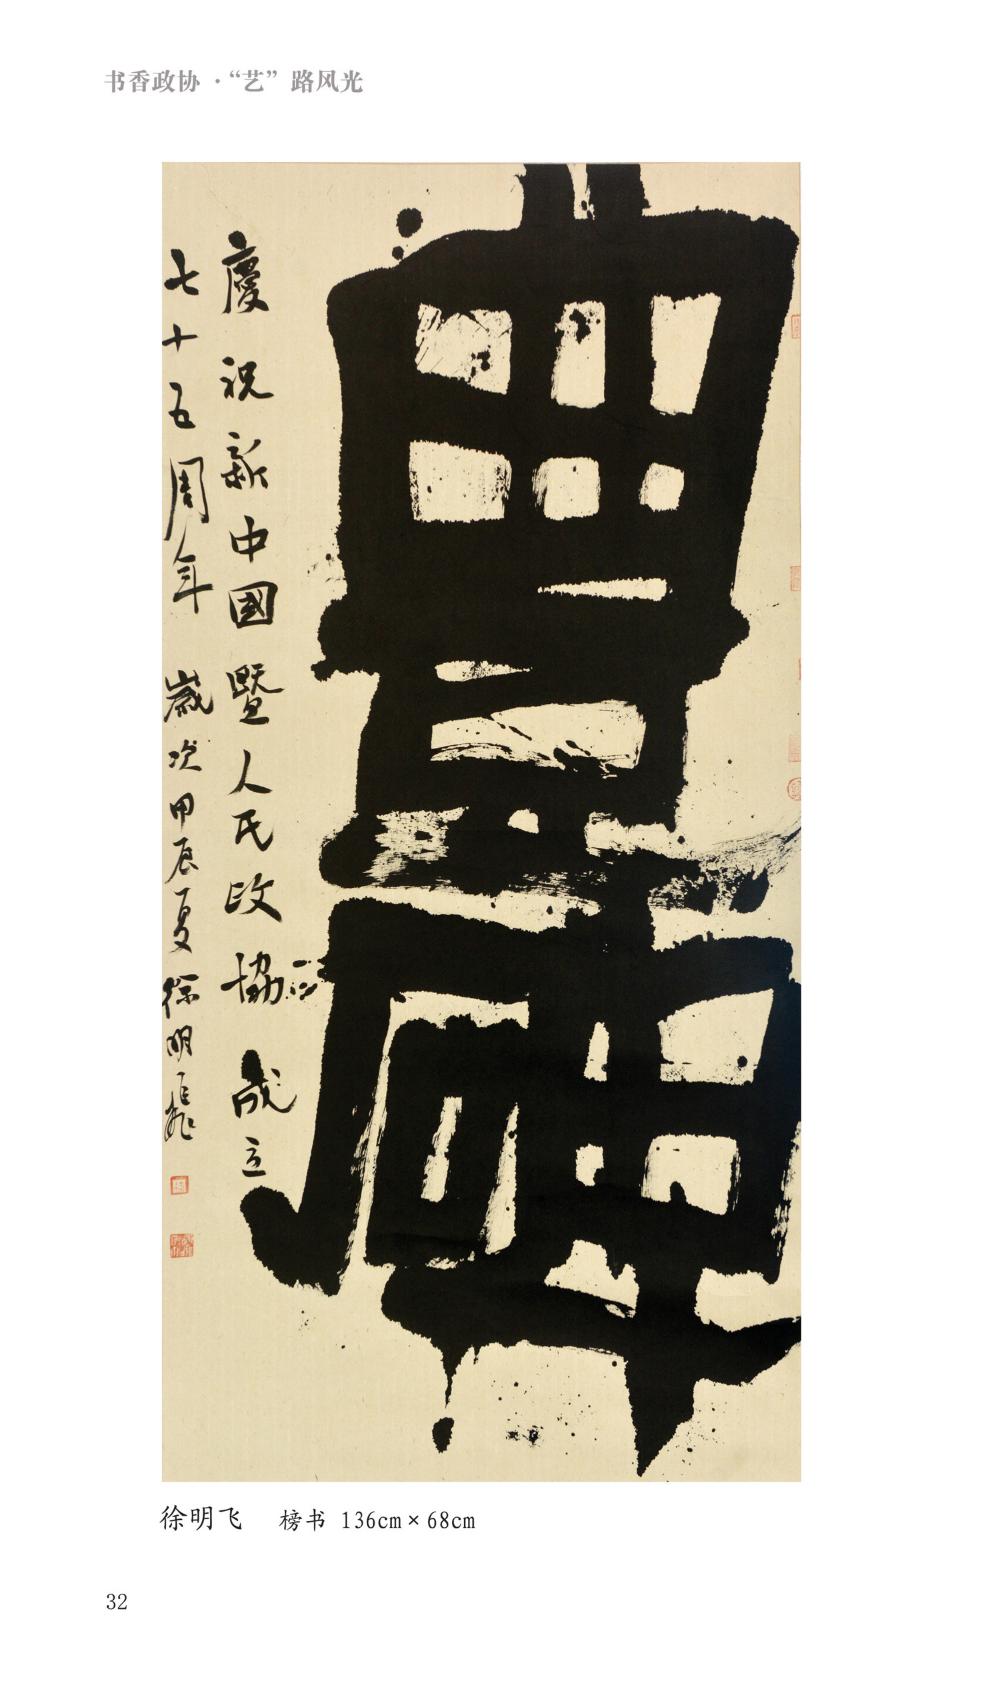 书香政协·“艺”路风光
豊碑
慶祝新中國暨人民政協成立
七十五周年 歲次甲辰夏徐明飛
徐明飞 榜书 136cm×68cm
32